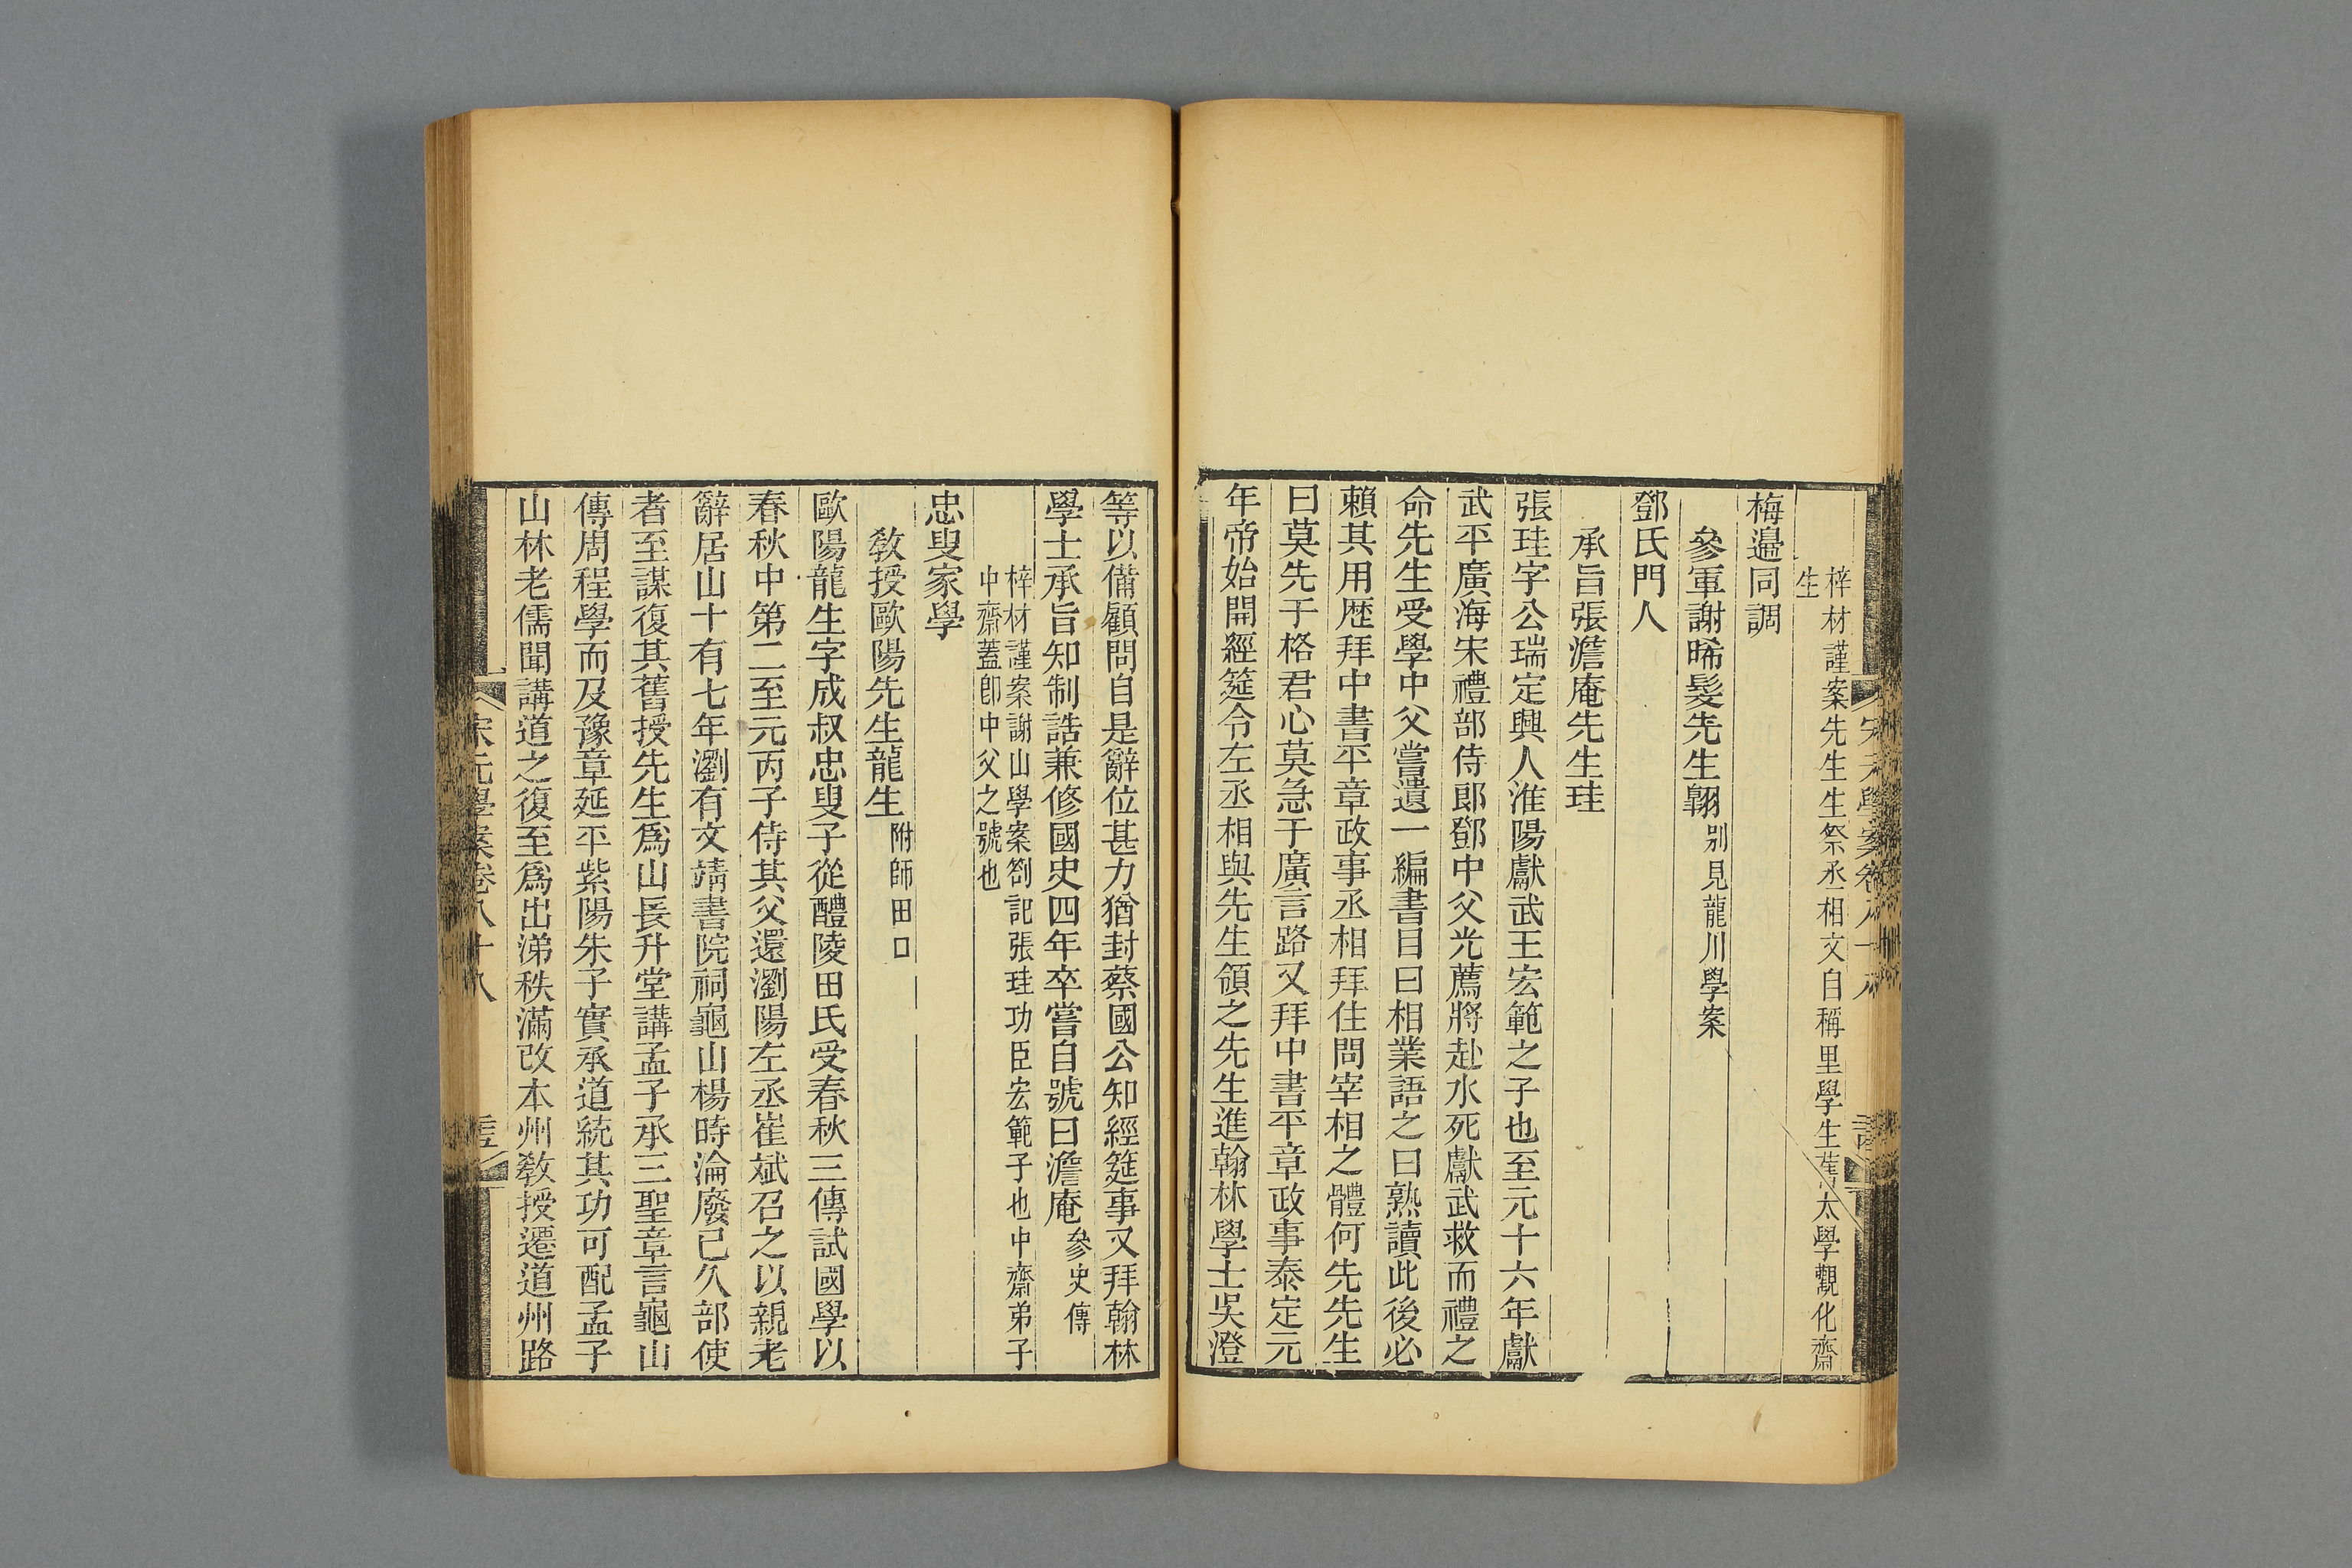 梓材謹案先生生祭丞相文自稱里學生舊太學觀化齋
生
梅邊同調
參軍謝晞髮先生翺別見龍川學案
鄧氏門人
承旨張澹庵先生珪
張珪字公瑞定興人淮陽獻武王宏範之子也至元十六年獻
武平廣海宋禮部侍郎鄧中父光薦將赴水死獻武救而禮之
命先生受學中父嘗遺一編書目曰相業語之曰熟讀此後必
賴其用歷拜中書平章政事丞相拜住問宰相之體何先先生
曰莫先于格君心莫急于廣言路又拜中書平章政事泰定元
年帝始開經筵令左丞相與先生領之先生進翰林學士吳澄
等以備顧問自是辭位甚力猶封蔡國公知經筵事又拜翰林
學士承旨知制誥兼修國史四年卒嘗自號曰澹庵參史傳
梓材謹案謝山學案劄記張珪功臣宏範子也中齋弟子
中齋蓋卽中父之號也
忠叟家學
教授歐陽先生龍生附師田口
歐陽龍生字成叔忠叟子從醴陵田氏受春秋三傳試國學以
春秋中第二至元丙子侍其父還瀏陽左丞崔斌召之以親老
辭居山十有七年瀏有文靖書院祠龜山楊時淪廢已久部使
者至謀復其舊授先生爲山長升堂講孟子承三聖章言龜山
傳周程學而及豫章延平紫陽朱子實承道統其功可配孟子
山林老儒聞講道之復至爲出涕秩滿改本州教授遷道州路
宋元學案卷八十八